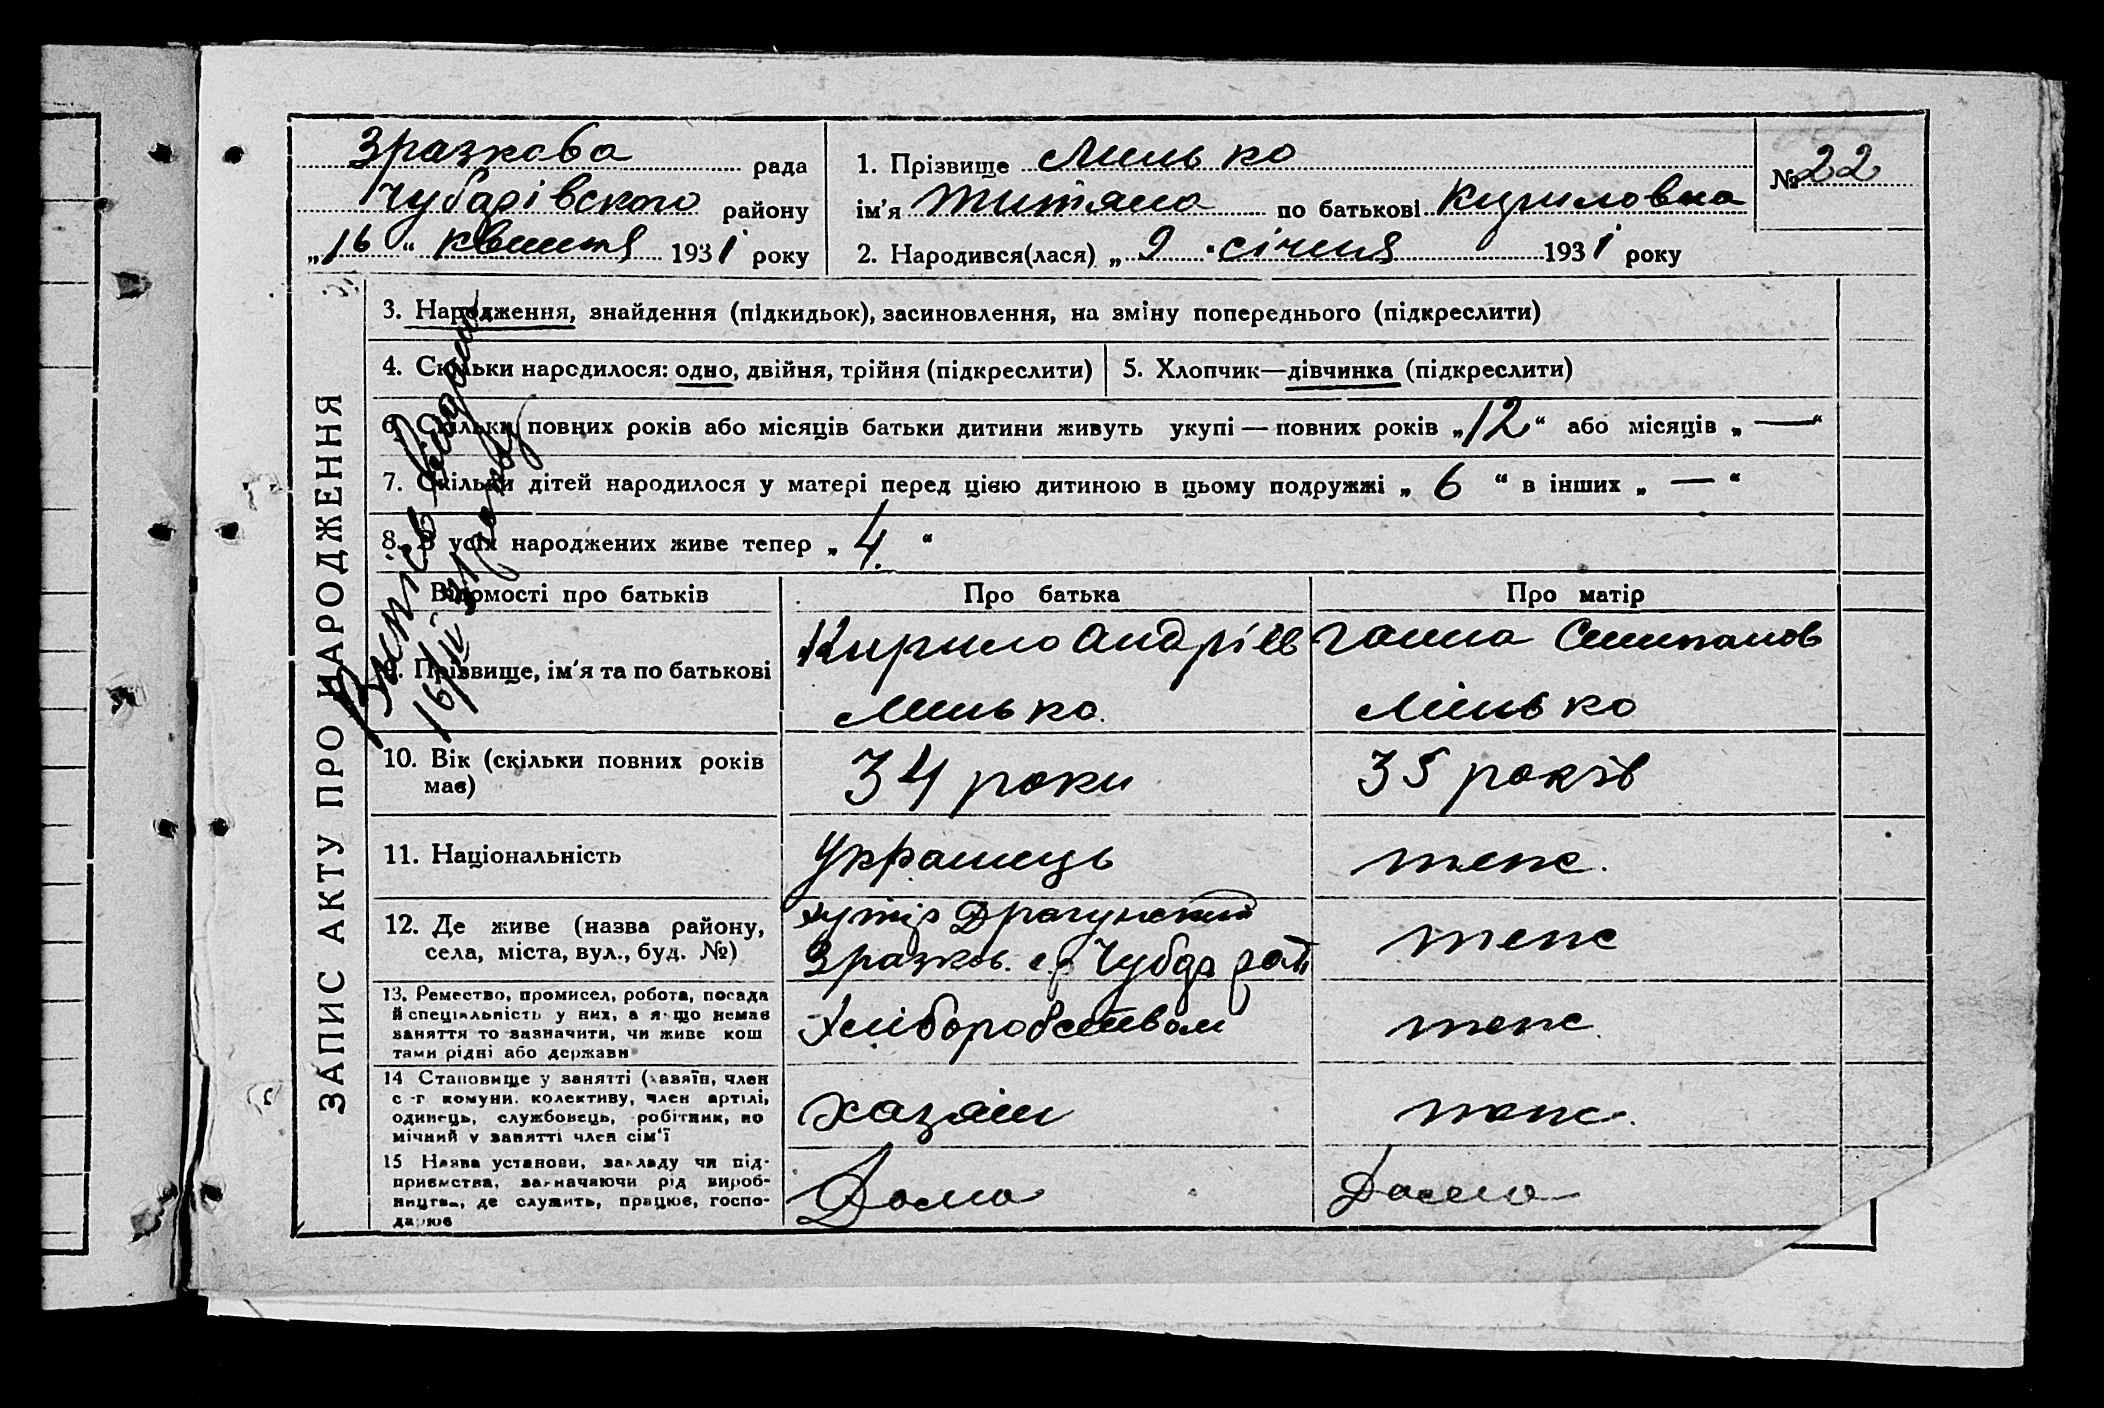 Зразкова рада
Чубарівського району
„16“ квитня 1931 року
1. Прізвище Минько
ім'я Титяна по батькові Кириловна
2. Народився(лася) „9“ січня 1931 року
№ 22
ЗАПИС АКТУ ПРО НАРОДЖЕННЯ
3. Народження, знайдення (підкидьок), засиновлення, на зміну попереднього (підкреслити)
4. Скільки народилося: одно, двійня, трійня (підкреслити)
5. Хлопчик—дівчинка (підкреслити)
6. Скільки повних років або місяців батьки дитини живуть укупі — повних років „12“ або місяців „—“
7. Скільки дітей народилося у матері перед цією дитиною в цьому подружжі „6“ в інших „—“
8. З усіх народжених живе тепер „4.“
16/IV 31 року
Відомості про батьків
Про батька
Про матір
9. Прізвище, ім'я та по батькові
Кирило Андріїв
Минько.
Ганна Степанов
Мінько
10. Вік (скільки повних років
має)
34 роки
35 років
11. Національність
Украинець
теж.
12. Де живе (назва району,
села, міста, вул., буд. №)
хутір Драгунский
Зразков. с.р Чубар рай
теж
13. Ремество, промисел, робота, посада
й спеціяльність у них, а якщо немає
заняття то зазначити, чи живе кош
тами рідні або держави
Хліборобством
теж.
14 Становище у занятті (хазяїн, член
с.-г комуни. колективу, член артілі,
одинець, службовець, робітник, по
мічний у занятті член сім'ї
хазяин
теж.
15 Назва установи, закладу чи під-
приємства, зазначаючи рід вироб-
ництва, де служить, працює, госпо-
дарює
Дома
Дома